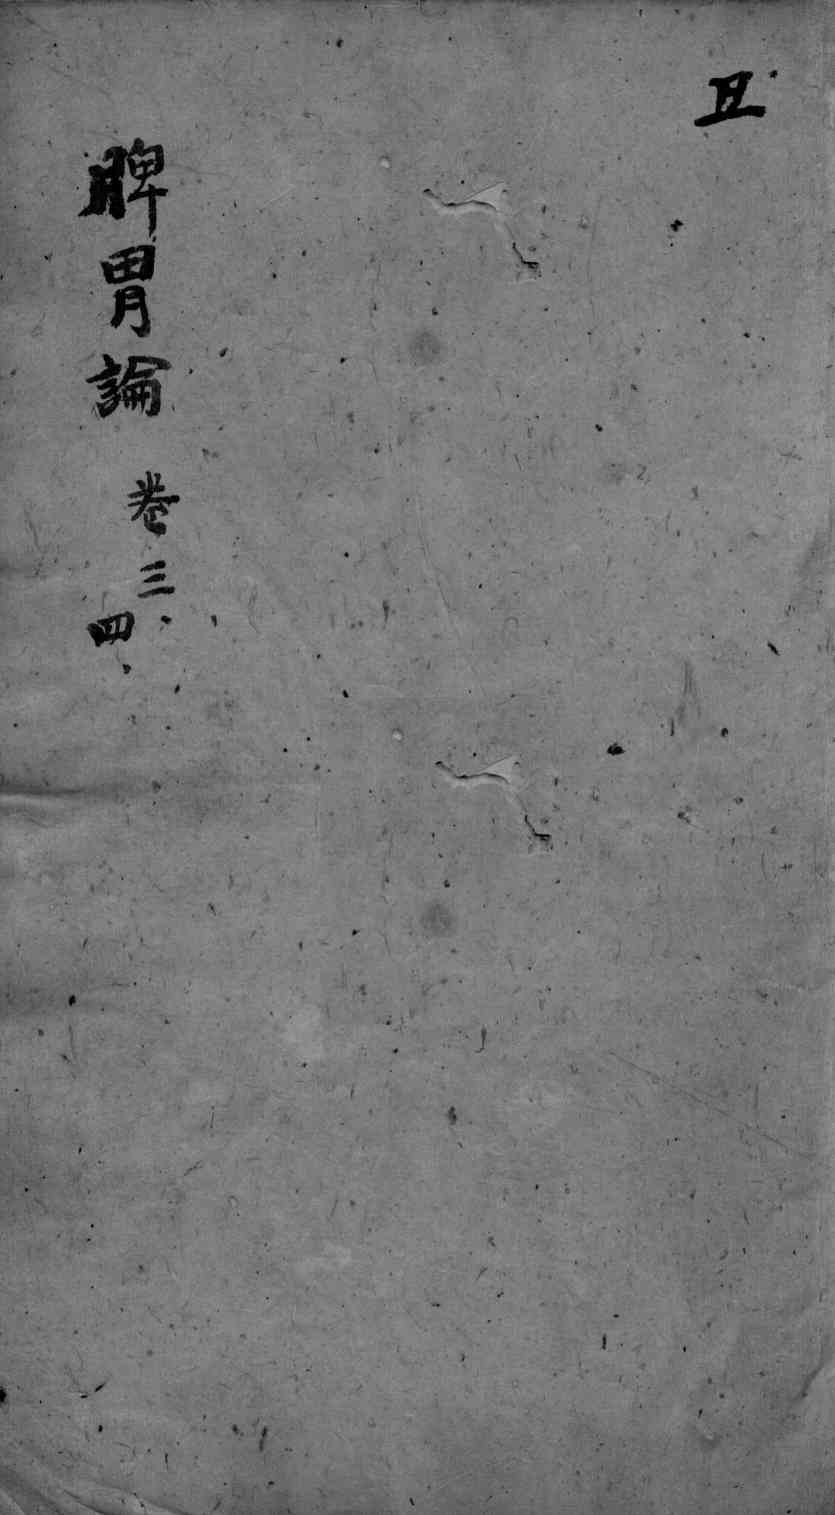 丑
脾胃論 卷三四